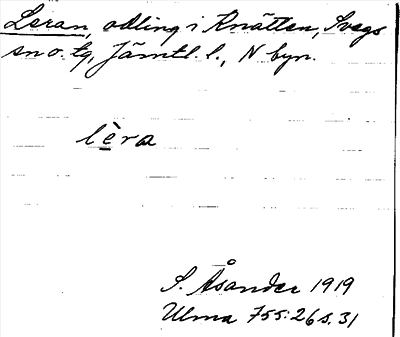 Leran, odling i Knätten, Svegs
sn o. tg, Jämtl. l., N byn.
lèra
S. Åsander 1919
Ulma 755:26 s. 31